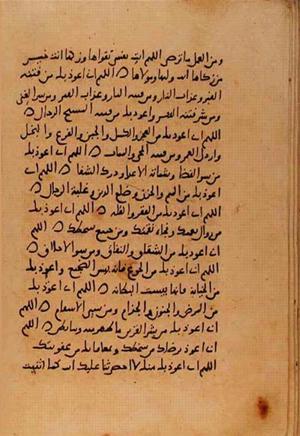 ومن العمل ما ترضى اللهم ات نفسي تقواها وزكها انت خير
من زكاها انت وليها ومولاها اللهم اني اعوذ بك من فتنة
القبر وعذاب النار ومن فتنة النار وعذاب القبر ومن شر الغنى
ومن شر فتنة الفقر واعوذ بك من فتنة المسيح الدجال
اللهم اني اعوذ بك من العجز والكسل والجبن والهرم والبخل
وارذل العمر ومن فتنة المحيا والممات اللهم اني اعوذ بك
من سوء القضا وشماتة الاعدا ودرك الشقا اللهم اني
اعوذ بك من الهم والحزن وضلع الدين وغلبة الرجال
اللهم اني اعوذ بك من الفقر والقلة اللهم اني اعوذ بك
من زوال نعمتك وفجاءة نقمتك ومن جميع سخطك اللهم
اني اعوذ بك من الشقاق والنفاق ومن سوء الاخلاق
اللهم اني اعوذ بك من الجوع فانه بئس الضجيع واعوذ بك
من الخيانة فانها بئست البطانة اللهم اني اعوذ بك
من البرص والجنون والجذام ومن سيئ الاسقام اللهم
اني اعوذ بك من شر
اني اعوذ برضاك من سخطك وبمعافاتك من عقوبتك
اللهم اني اعوذ بك منك لا احصي ثنا عليك انت كما اثنيت